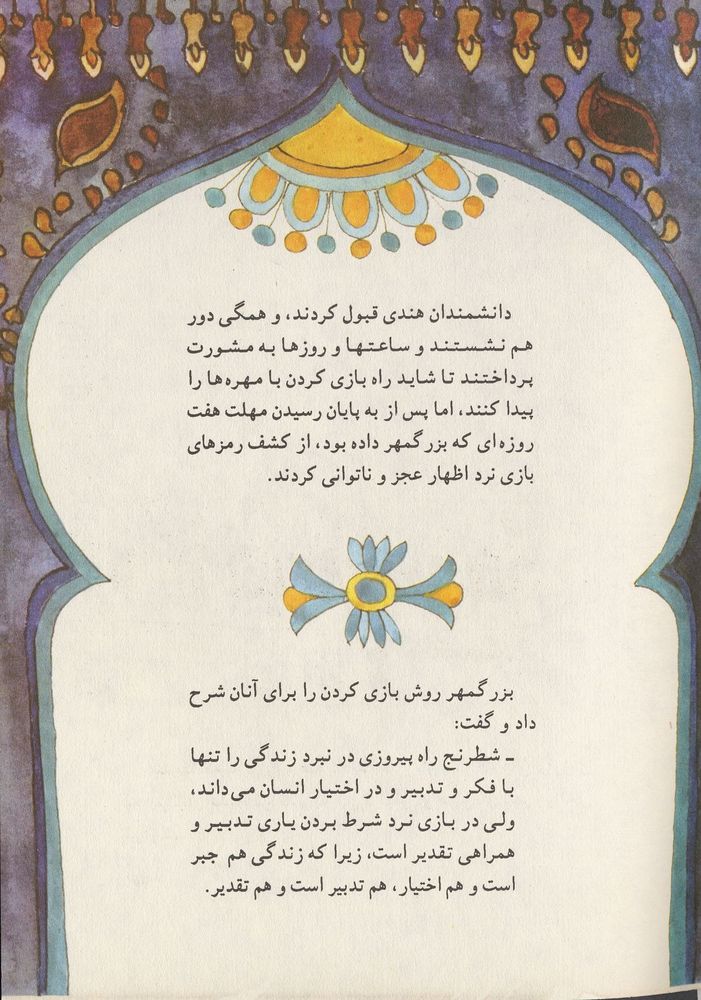 دانشمندان هندی قبول کردند، و همگی دور
هم نشستند و ساعتها و روزها به مشورت
پرداختند تا شاید راه بازی کردن با مهره‌ها را
پیدا کنند، اما پس از به پایان رسیدن مهلت هفت
روزه‌ای که بزرگمهر داده بود، از کشف رمزهای
بازی نرد اظهار عجز و ناتوانی کردند.
بزرگمهر روش بازی کردن را برای آنان شرح
داد و گفت:
ـ شطرنج راه پیروزی در نبرد زندگی را تنها
با فکر و تدبیر و در اختیار انسان می‌داند،
ولی در بازی نرد شرط بردن یاری تدبیر و
همراهی تقدیر است، زیرا که زندگی هم جبر
است و هم اختیار، هم تدبیر است و هم تقدیر.